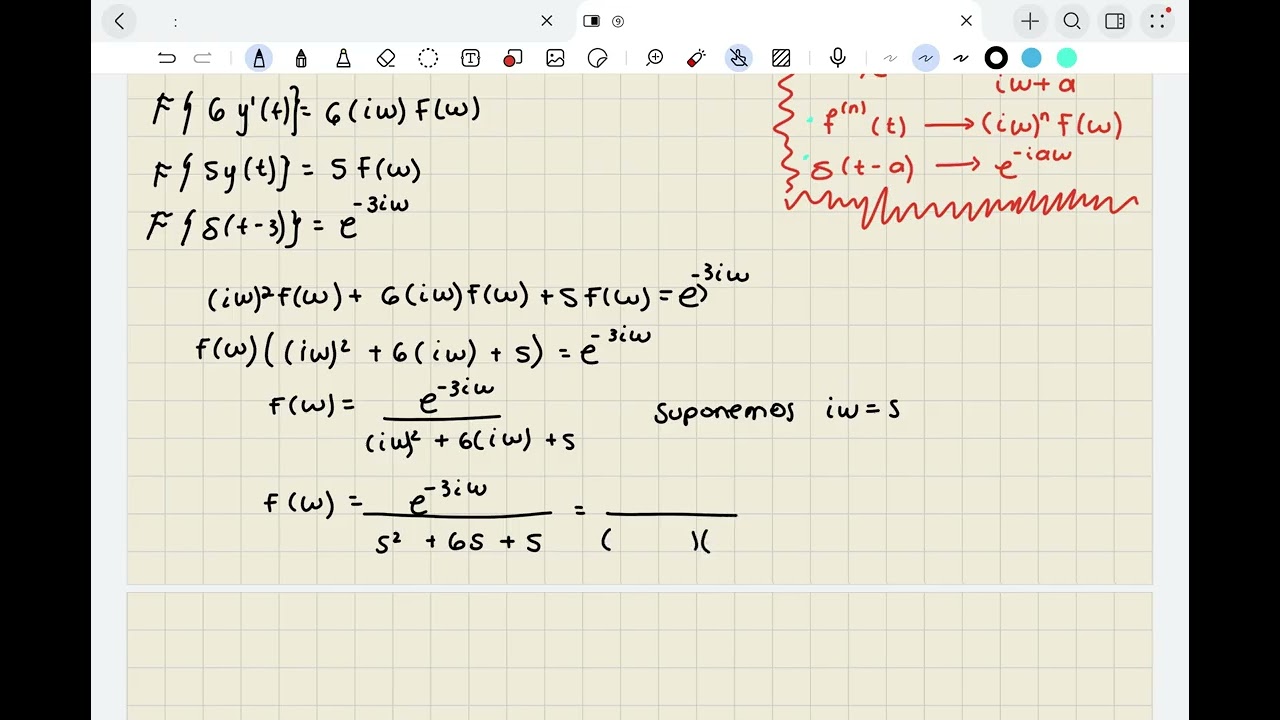 :
⑨
T
F{6 y'(t)} = 6(iω) F(ω)
F{5y(t)} = 5 F(ω)
F{δ(t-3)} = e^{-3iω}
iω+a
f^{(n)}(t) → (iω)^n F(ω)
δ(t-a) → e^{-iaω}
(iω)²F(ω) + 6(iω)F(ω) + 5F(ω) = e^{-3iω}
F(ω)((iω)² + 6(iω) + 5) = e^{-3iω}
F(ω) = e^{-3iω} / (iω)² + 6(iω) + 5
suponemos iω = s
F(ω) = e^{-3iω} / s² + 6s + 5 = / ( )(